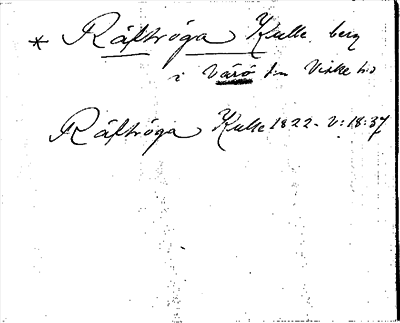 * Räftröga Kulle, berg
i Värö sn Viske hd
Räftröga Kulle 1822 - V: 18: 37